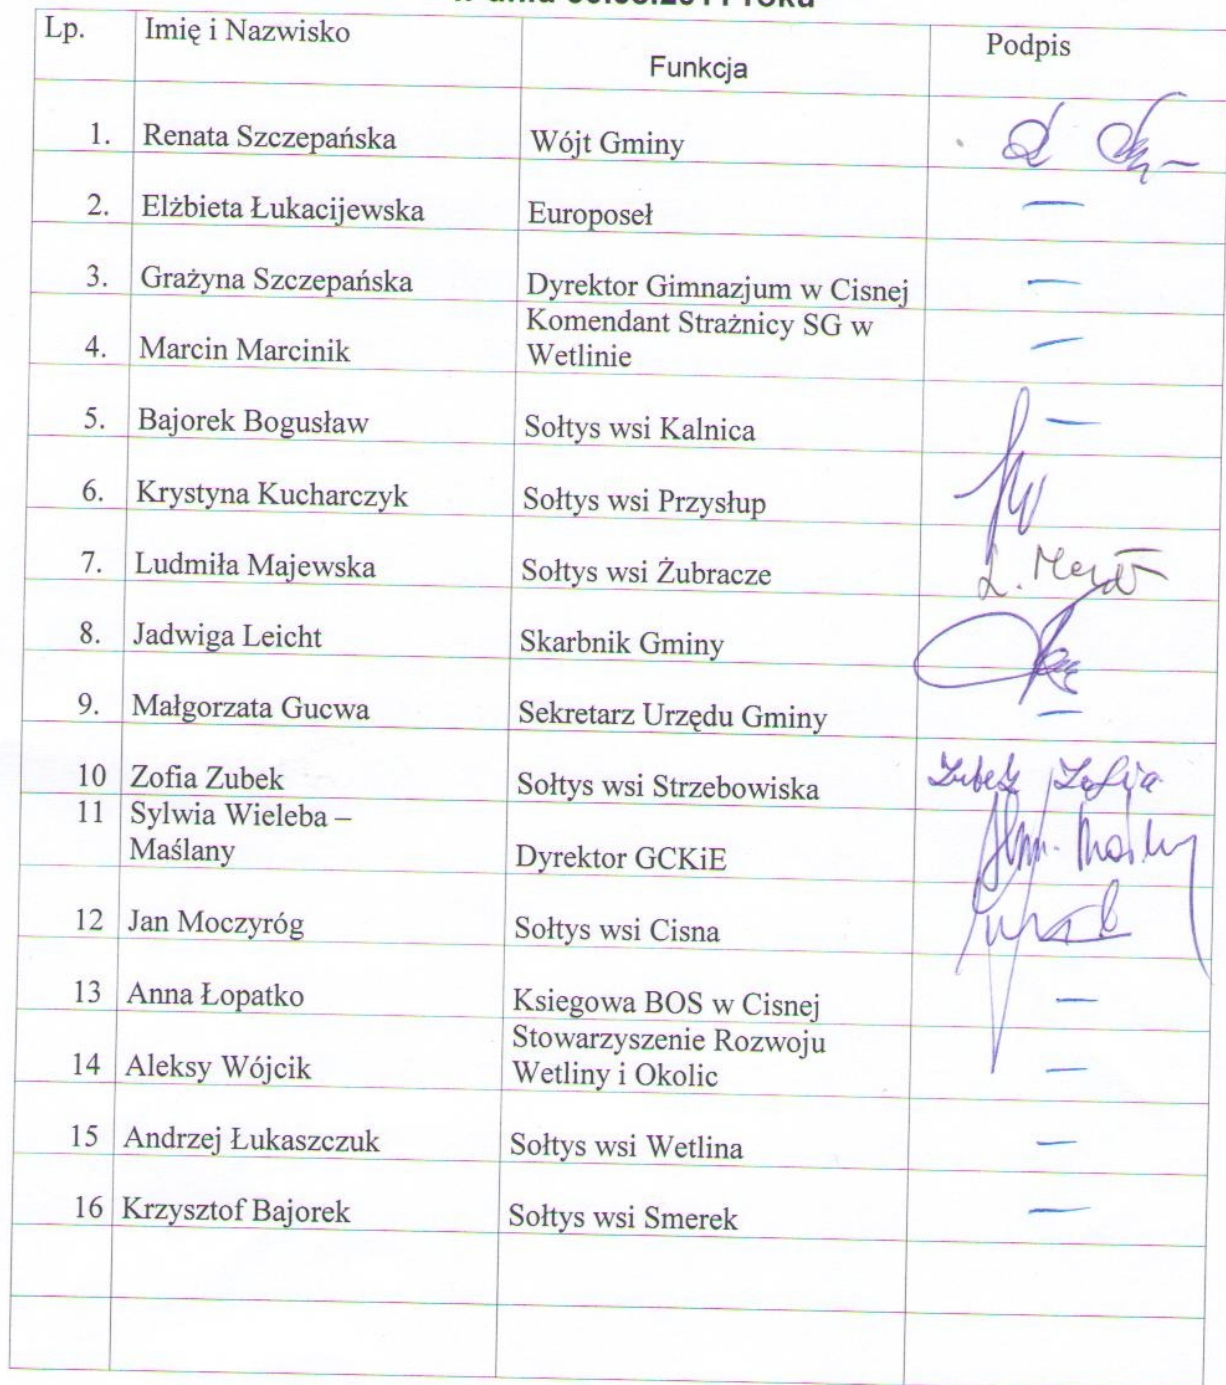 Lp. Imię i Nazwisko Funkcja Podpis
1. Renata Szczepańska Wójt Gminy
2. Elżbieta Łukacijewska Europoseł —
3. Grażyna Szczepańska Dyrektor Gimnazjum w Cisnej —
4. Marcin Marcinik Komendant Strażnicy SG w
Wetlinie —
5. Bajorek Bogusław Sołtys wsi Kalnica —
6. Krystyna Kucharczyk Sołtys wsi Przysłup
7. Ludmiła Majewska Sołtys wsi Żubracze
8. Jadwiga Leicht Skarbnik Gminy
9. Małgorzata Gucwa Sekretarz Urzędu Gminy —
10 Zofia Zubek Sołtys wsi Strzebowiska Zubek Zofia
11 Sylwia Wieleba –
Maślany Dyrektor GCKiE
12 Jan Moczyróg Sołtys wsi Cisna
13 Anna Łopatko Ksiegowa BOS w Cisnej —
14 Aleksy Wójcik Stowarzyszenie Rozwoju
Wetliny i Okolic —
15 Andrzej Łukaszczuk Sołtys wsi Wetlina —
16 Krzysztof Bajorek Sołtys wsi Smerek —